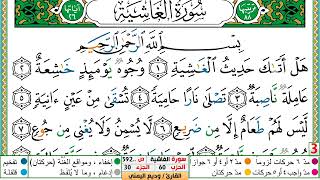 سُورَةُ الْغَاشِيَةِ
بِسْمِ اللَّهِ الرَّحْمَٰنِ الرَّحِيمِ
هَلْ أَتَىٰكَ حَدِيثُ الْغَٰشِيَةِ ١ وُجُوهٌ يَوْمَئِذٍ خَٰشِعَةٌ ٢
عَامِلَةٌ نَّاصِبَةٌ ٣ تَصْلَىٰ نَارًا حَامِيَةً ٤ تُسْقَىٰ مِنْ عَيْنٍ ءَانِيَةٍ ٥
لَّيْسَ لَهُمْ طَعَامٌ إِلَّا مِن ضَرِيعٍ ٦ لَّا يُسْمِنُ وَلَا يُغْنِي مِن جُوعٍ ٧
3
سورة الغاشية ص:592
الحزب 60 الجزء 30
القارئ / وديع اليمني
تفخيم
قلقلة